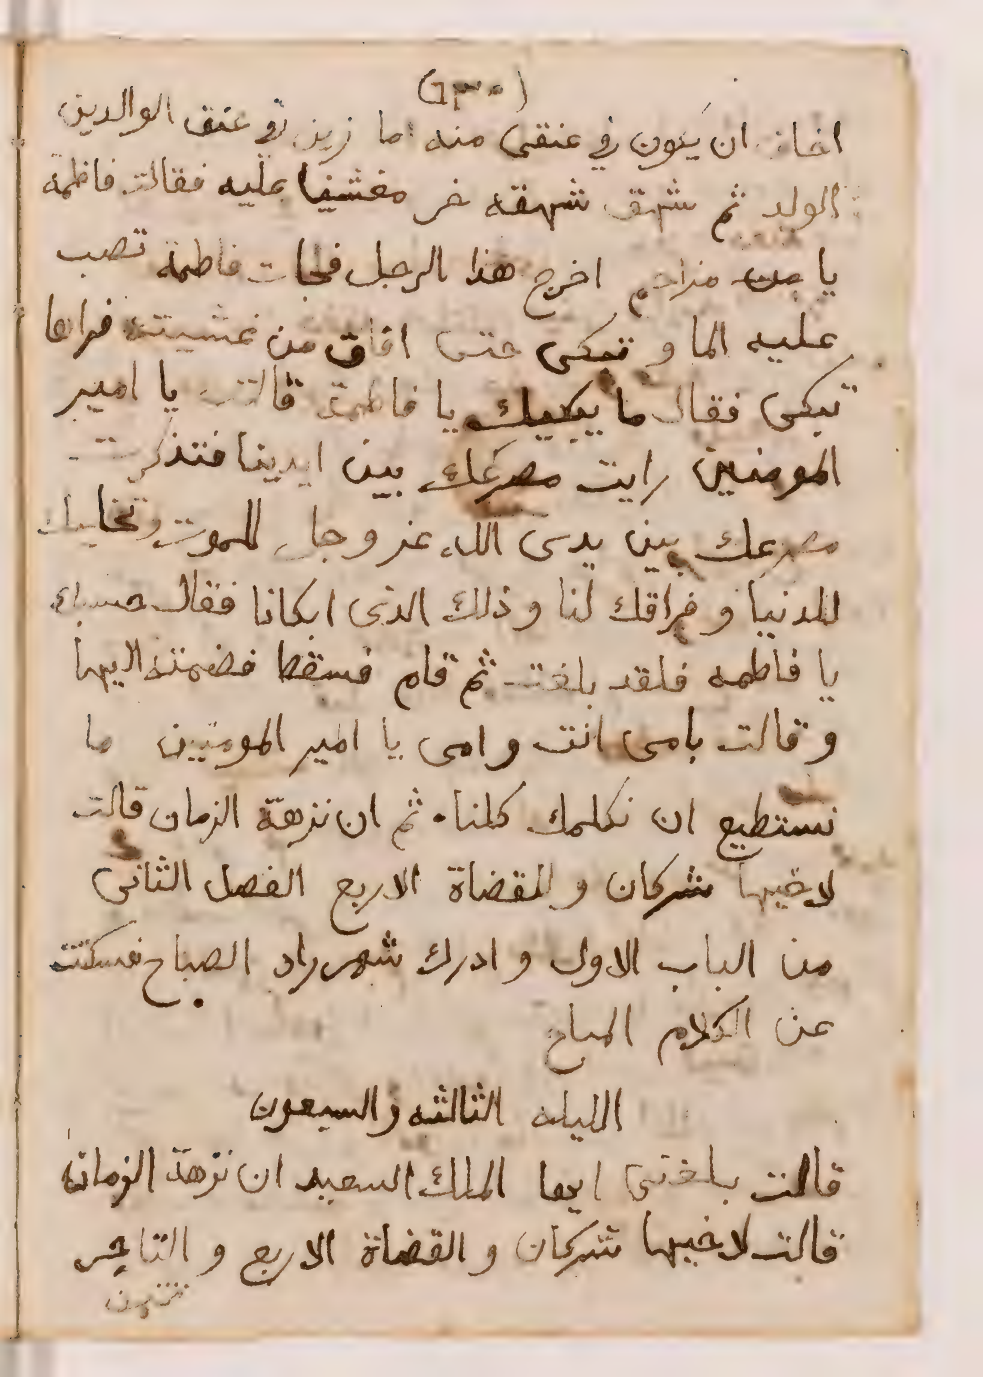 (٦٣٠)
اخاف ان يكون في عنقي منه اما زين في عنق الوالدين
الولد ثم شهق شهقه خر مغشيا عليه فقالت فاطمة
يا من مزاحم اخرج هذا الرجل فجات فاطمة تصب
عليه الما و تبكى حتى افاق من غشيته فراها
تبكى فقال ما يبكيك يا فاطمة قالت يا امير
المومنين رايت مصرعك بين ايدينا فتذكرت
مصرعك بين يدى الله عز وجل للموت وتخليك
للدنيا و فراقك لنا و ذلك الذى ابكانا فقال حسبك
يا فاطمه فلقد بلغت ثم قام فسقط فضمته اليها
و قالت بامى انت و امى يا امير المومنين ما
نستطيع ان نكلمك كلنا. ثم ان نزهة الزمان قالت
لاخيها شركان و للقضاة الاربع الفصل الثانى
من الباب الاول و ادرك شهرراد الصباح فسكتت
عن الكلام المباح
الليله الثالثه والسبعون
قالت بلغنى ايها الملك السعيد ان نزهة الزمان
قالت لاخيها شركان و القضاة الاربع و التاجر